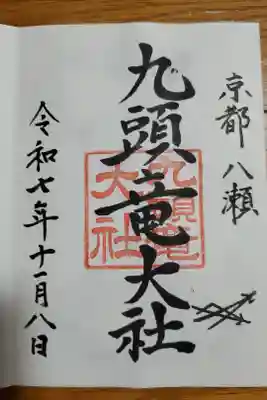 京都 八瀬
九頭竜大社
九頭竜
大社
令和七年十一月八日